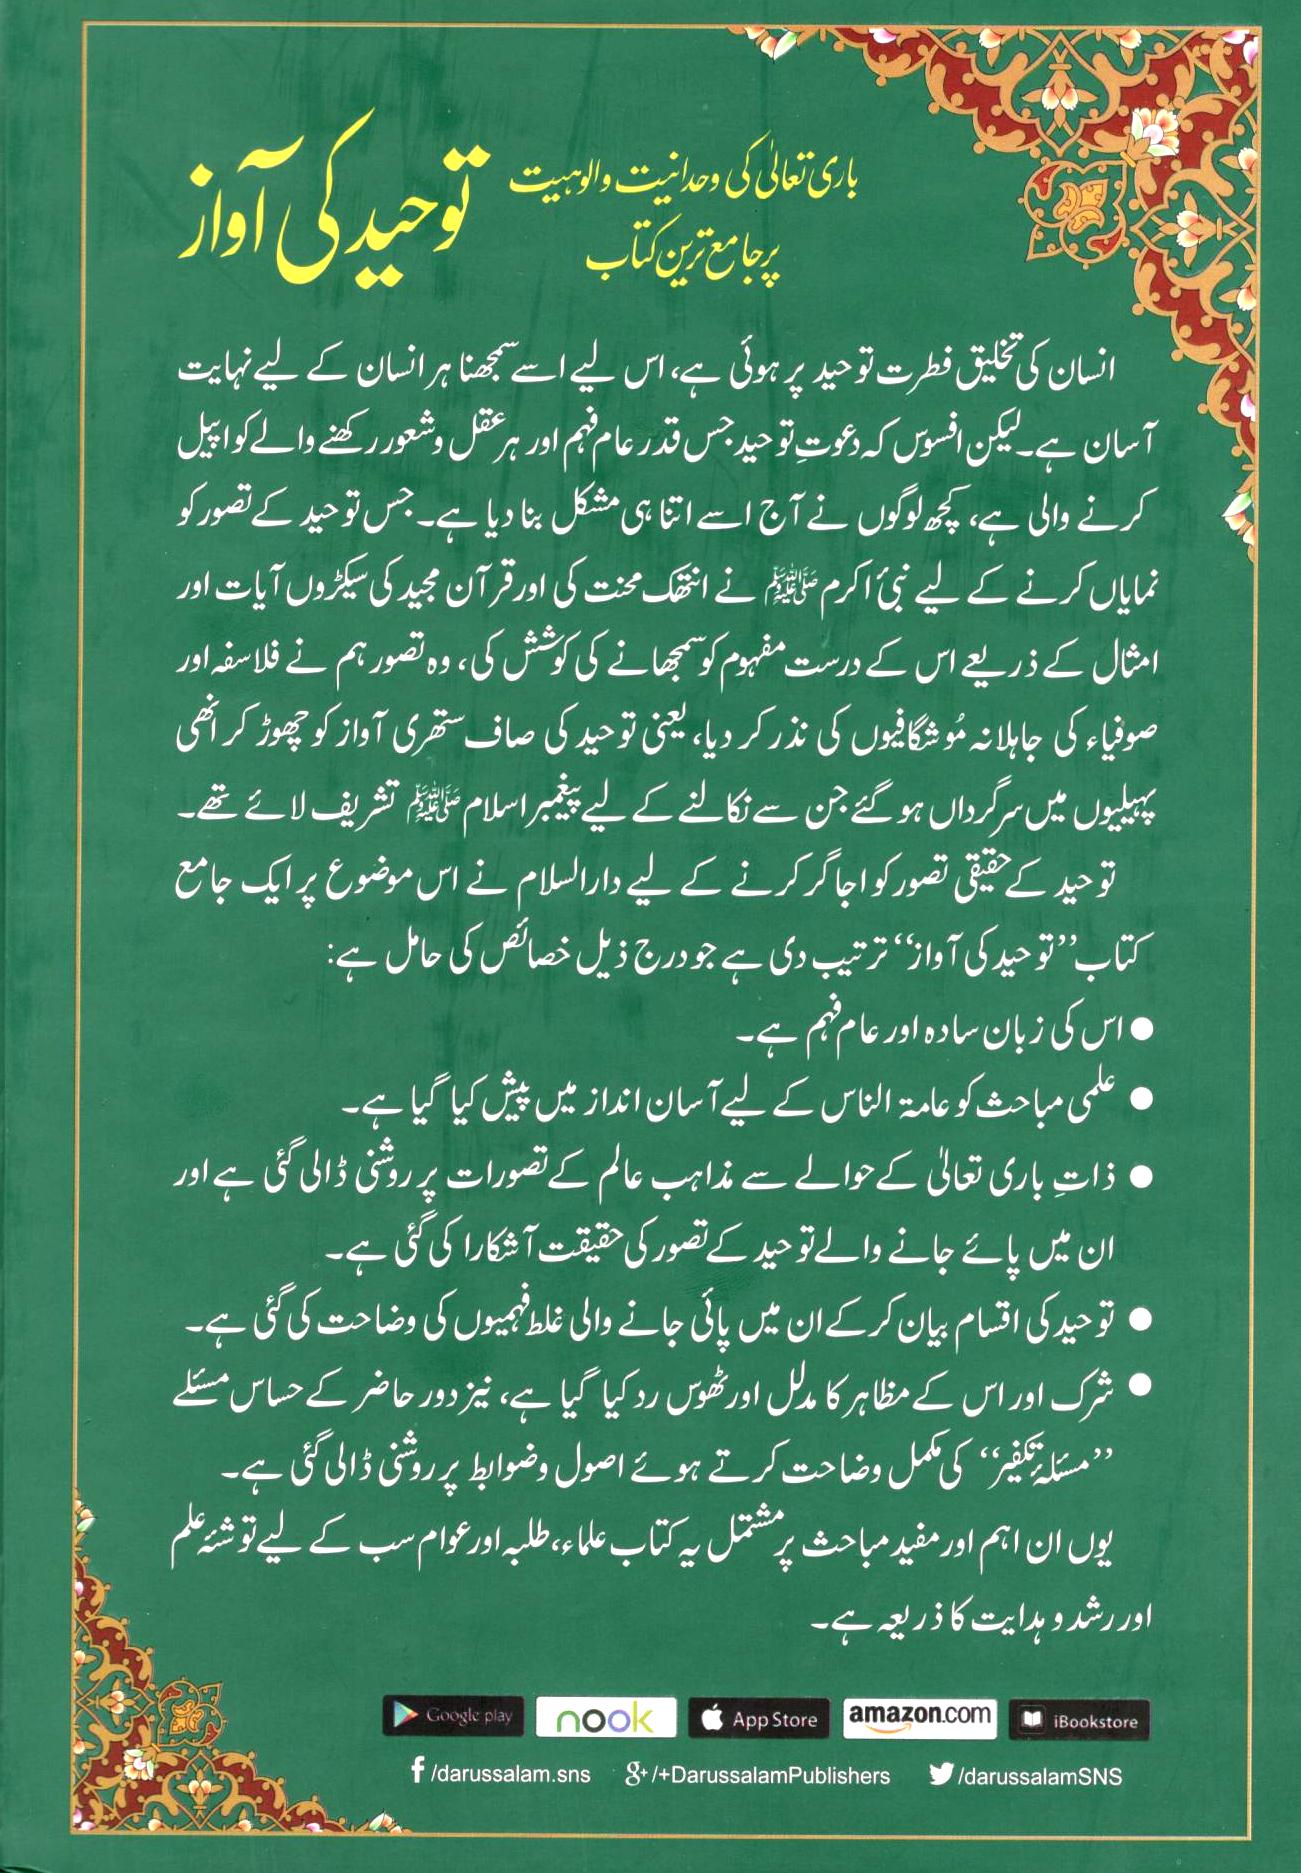 باری تعالیٰ کی وحدانیت والوہیت
پر جامع ترین کتاب
توحید کی آواز
انسان کی تخلیق فطرت توحید پر ہوئی ہے، اس لیے اسے سمجھنا ہر انسان کے لیے نہایت
آسان ہے۔ لیکن افسوس کہ دعوتِ توحید جس قدر عام فہم اور ہر عقل و شعور رکھنے والے کو اپیل
کرنے والی ہے، کچھ لوگوں نے آج اسے اتنا ہی مشکل بنا دیا ہے۔ جس توحید کے تصور کو
نمایاں کرنے کے لیے نبیٔ اکرم ﷺ نے انتھک محنت کی اور قرآن مجید کی سیکڑوں آیات اور
امثال کے ذریعے اس کے درست مفہوم کو سمجھانے کی کوشش کی، وہ تصور ہم نے فلاسفہ اور
صوفیاء کی جاہلانہ مُوشگافیوں کی نذر کر دیا، یعنی توحید کی صاف ستھری آواز کو چھوڑ کر انھی
پہیلیوں میں سرگرداں ہو گئے جن سے نکالنے کے لیے پیغمبر اسلام ﷺ تشریف لائے تھے۔
توحید کے حقیقی تصور کو اجاگر کرنے کے لیے دارالسلام نے اس موضوع پر ایک جامع
کتاب ’’توحید کی آواز‘‘ ترتیب دی ہے جو درج ذیل خصائص کی حامل ہے:
● اس کی زبان سادہ اور عام فہم ہے۔
● علمی مباحث کو عامۃ الناس کے لیے آسان انداز میں پیش کیا گیا ہے۔
● ذاتِ باری تعالیٰ کے حوالے سے مذاہب عالم کے تصورات پر روشنی ڈالی گئی ہے اور
ان میں پائے جانے والے توحید کے تصور کی حقیقت آشکارا کی گئی ہے۔
● توحید کی اقسام بیان کر کے ان میں پائی جانے والی غلط فہمیوں کی وضاحت کی گئی ہے۔
● شرک اور اس کے مظاہر کا مدلل اور ٹھوس رد کیا گیا ہے، نیز دور حاضر کے حساس مسئلے
’’مسئلۂ تکفیر‘‘ کی مکمل وضاحت کرتے ہوئے اصول وضوابط پر روشنی ڈالی گئی ہے۔
یوں ان اہم اور مفید مباحث پر مشتمل یہ کتاب علماء، طلبہ اور عوام سب کے لیے توشۂ علم
اور رشد و ہدایت کا ذریعہ ہے۔
Google play nook App Store amazon.com iBookstore
f /darussalam.sns g+ /+DarussalamPublishers /darussalamSNS